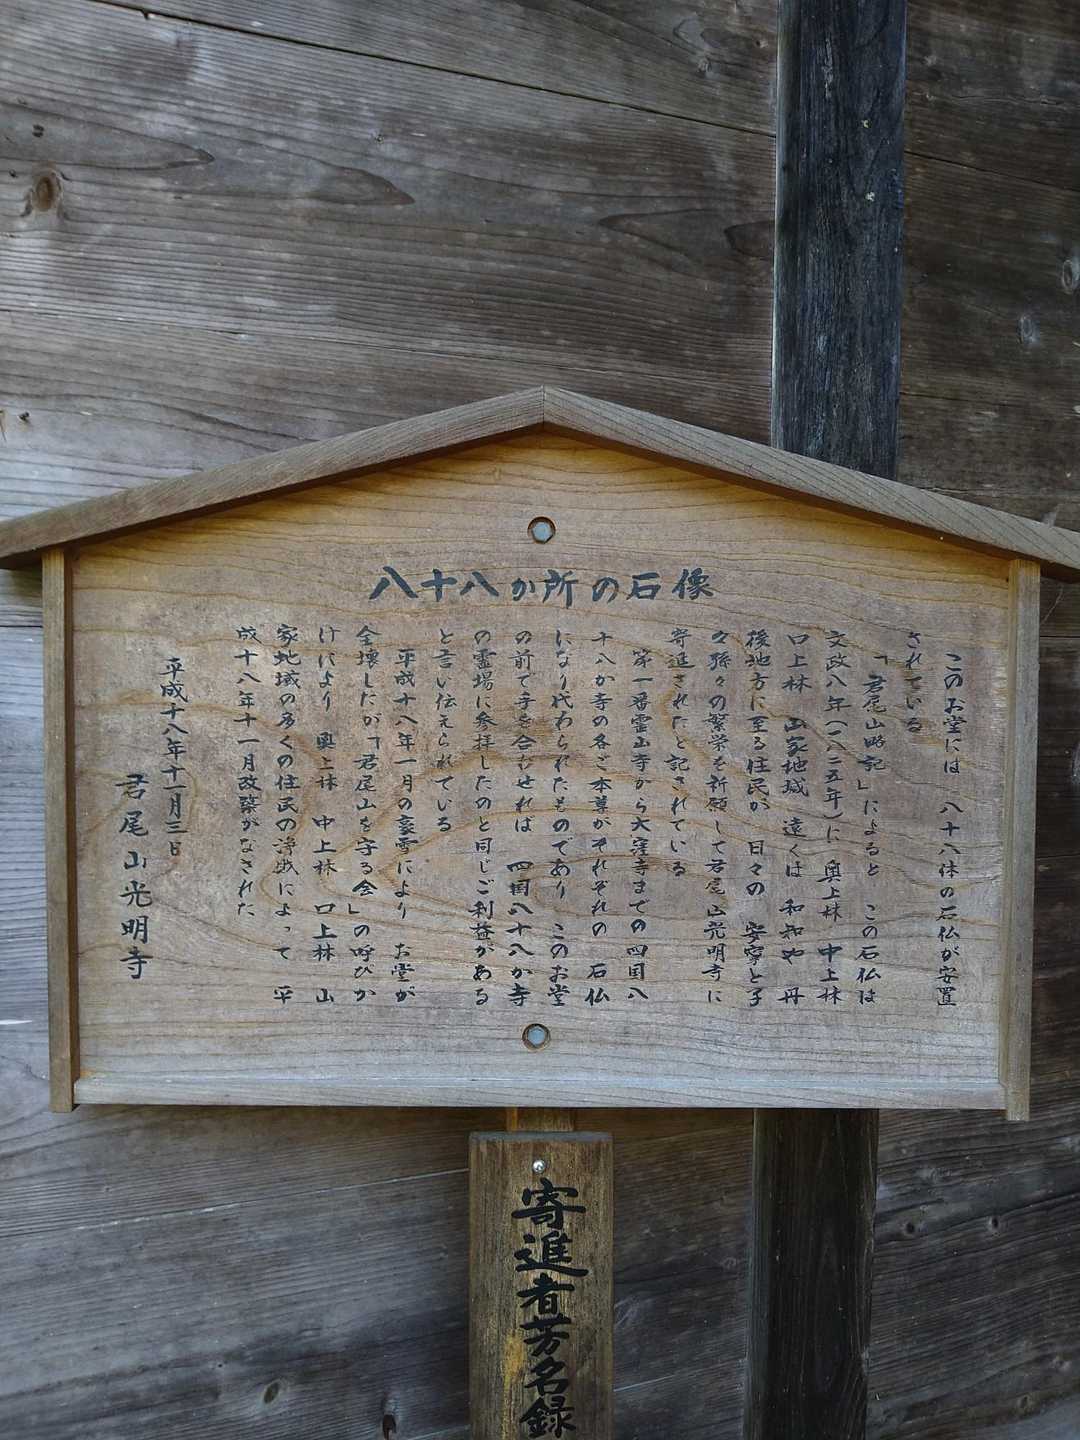 八十八か所の石像
このお堂には 八十八体の石仏が安置
されている
「君尾山略記」によると この石仏は
文政八年(一八二五年)に 奥上林 中上林
口上林 山家地域 遠くは 和知や 丹
後地方に至る住民が 日々の 安寧と子
々孫々の繁栄を祈願して君尾山光明寺に
寄進されたと記されている
第一番霊山寺から大窪寺までの 四国八
十八か寺の各ご本尊がそれぞれの 石仏
になり代わられたものであり このお堂
の前で手を合わせれば 四国八十八か寺
の霊場に参拝したのと同じご利益がある
と言い伝えられている
平成十八年一月の豪雪により お堂が
全壊したが「君尾山を守る会」の呼びか
けにより 奥上林 中上林 口上林 山
家地域の多くの住民の浄財によって 平
成十八年十一月改築がなされた
平成十八年十一月三日
君尾山光明寺
寄進者芳名録